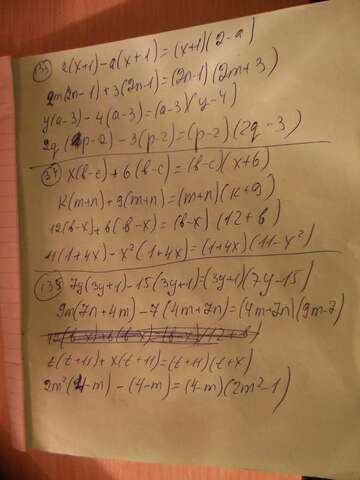 (33) 2(x+1)-a(x+1)=(x+1)(2-a)
2m(2n-1)+3(2n-1)=(2n-1)(2m+3)
y(a-3)-4(a-3)=(a-3)(y-4)
2q(p-2)-3(p-2)=(p-2)(2q-3)
(34) x(b-c)+6(b-c)=(b-c)(x+6)
k(m+n)+9(m+n)=(m+n)(k+9)
12(b-x)+b(b-x)=(b-x)(12+b)
11(1+4x)-x²(1+4x)=(1+4x)(11-x²)
(135) 7y(3y+1)-15(3y+1)=(3y+1)(7y-15)
9m(7n+4m)-7(4m+7n)=(4m+7n)(9m-7)
12(b-x)+b(b-x)=(b-x)(12+b)
t(t+11)+x(t+11)=(t+11)(t+x)
2m²(4-m)-(4-m)=(4-m)(2m²-1)